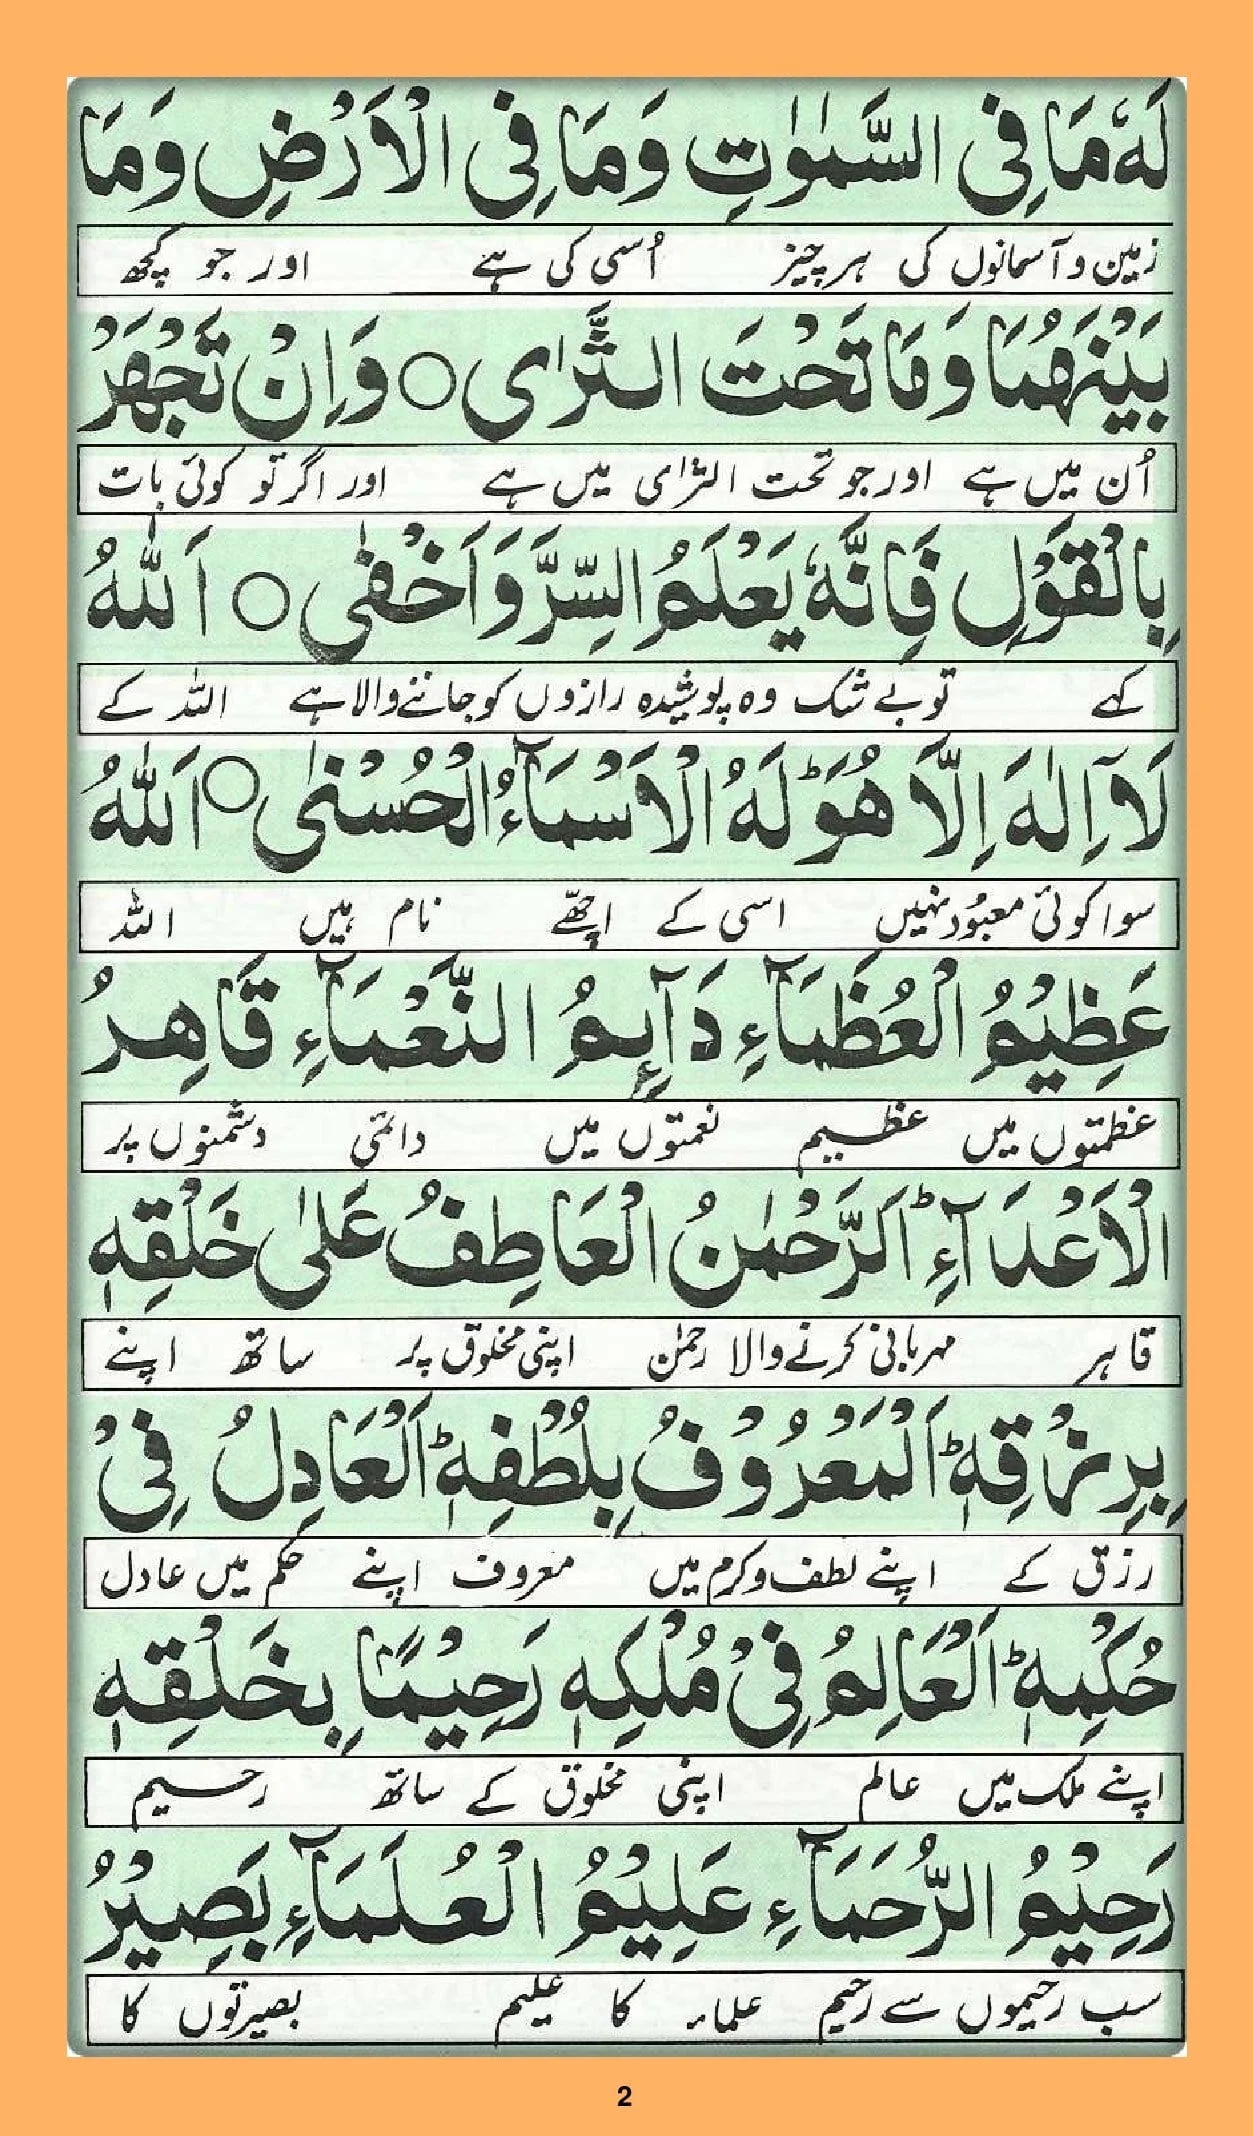 لَهٗ مَا فِی السَّمٰوٰتِ وَمَا فِی الْاَرْضِ وَمَا
زمین و آسمانوں کی ہر چیز اُسی کی ہے اور جو کچھ
بَیْنَهُمَا وَمَا تَحْتَ الثَّرٰی ○ وَاِنْ تَجْهَرْ
اُن میں ہے اور جو تحت الثرٰی میں ہے اور اگر تو کوئی بات
بِالْقَوْلِ فَاِنَّهٗ یَعْلَمُ السِّرَّ وَاَخْفٰی ○ اَللّٰهُ
کہے تو بے شک وہ پوشیدہ رازوں کو جاننے والا ہے اللہ کے
لَاۤ اِلٰهَ اِلَّا هُوَ ؕ لَهُ الْاَسْمَآءُ الْحُسْنٰی ○ اَللّٰهُ
سوا کوئی معبود نہیں اسی کے اچھے نام ہیں اللہ
عَظِیْمُ الْعُظَمَآءِ دَآىِٕمُ النَّعْمَآءِ قَاهِرُ
عظمتوں میں عظیم نعمتوں میں دائمی دشمنوں پر
الْاَعْدَآءِ ؕ اَلرَّحْمٰنُ الْعَاطِفُ عَلٰی خَلْقِهٖ
قاہر مہربانی کرنے والا رحمٰن اپنی مخلوق پر ساتھ اپنے
بِرِزْقِهٖ ؕ اَلْمَعْرُوْفُ بِلُطْفِهٖ ؕ اَلْعَادِلُ فِیْ
رزق کے اپنے لطف و کرم میں معروف اپنے حکم میں عادل
حُكْمِهٖ ؕ اَلْعَالِمُ فِیْ مُلْكِهٖ رَحِیْمًا بِخَلْقِهٖ
اپنے ملک میں عالم اپنی مخلوق کے ساتھ رحیم
رَحِیْمُ الرُّحَمَآءِ عَلِیْمُ الْعُلَمَآءِ بَصِیْرُ
سب رحیموں سے رحیم علماء کا علیم بصیرتوں کا
2